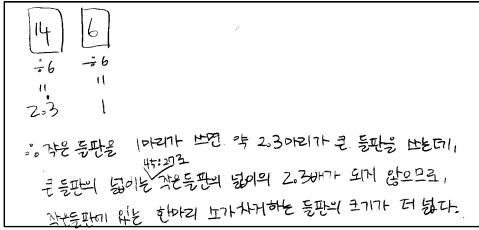 14 6
÷6 ÷6
= =
2.3 1
∴ 작은 들판을 1마리가 쓰면 약 2.3마리가 큰 들판을 쓰는데,
45:27로
큰 들판의 넓이는 작은들판의 넓이의 2.3배가 되지 않으므로,
작은들판에 있는 한마리 소가 차지하는 들판의 크기가 더 넓다.